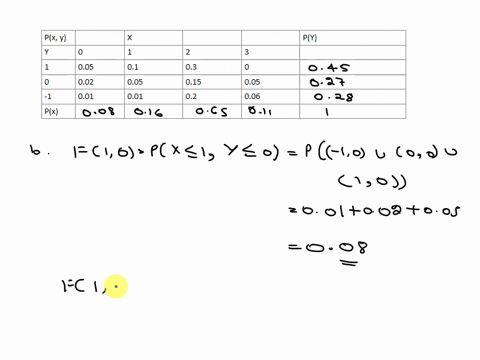 P(x, y) X P(Y)
Y 0 1 2 3
1 0.05 0.1 0.3 0 0.45
0 0.02 0.05 0.15 0.05 0.27
-1 0.01 0.01 0.2 0.06 0.28
P(x) 0.08 0.16 0.65 0.11 1
b. F(1,0) = P(X ≤ 1, Y ≤ 0) = P((-1,0) ∪ (0,0) ∪
(1,0))
= 0.01 + 0.02 + 0.05
= 0.08
F(1,